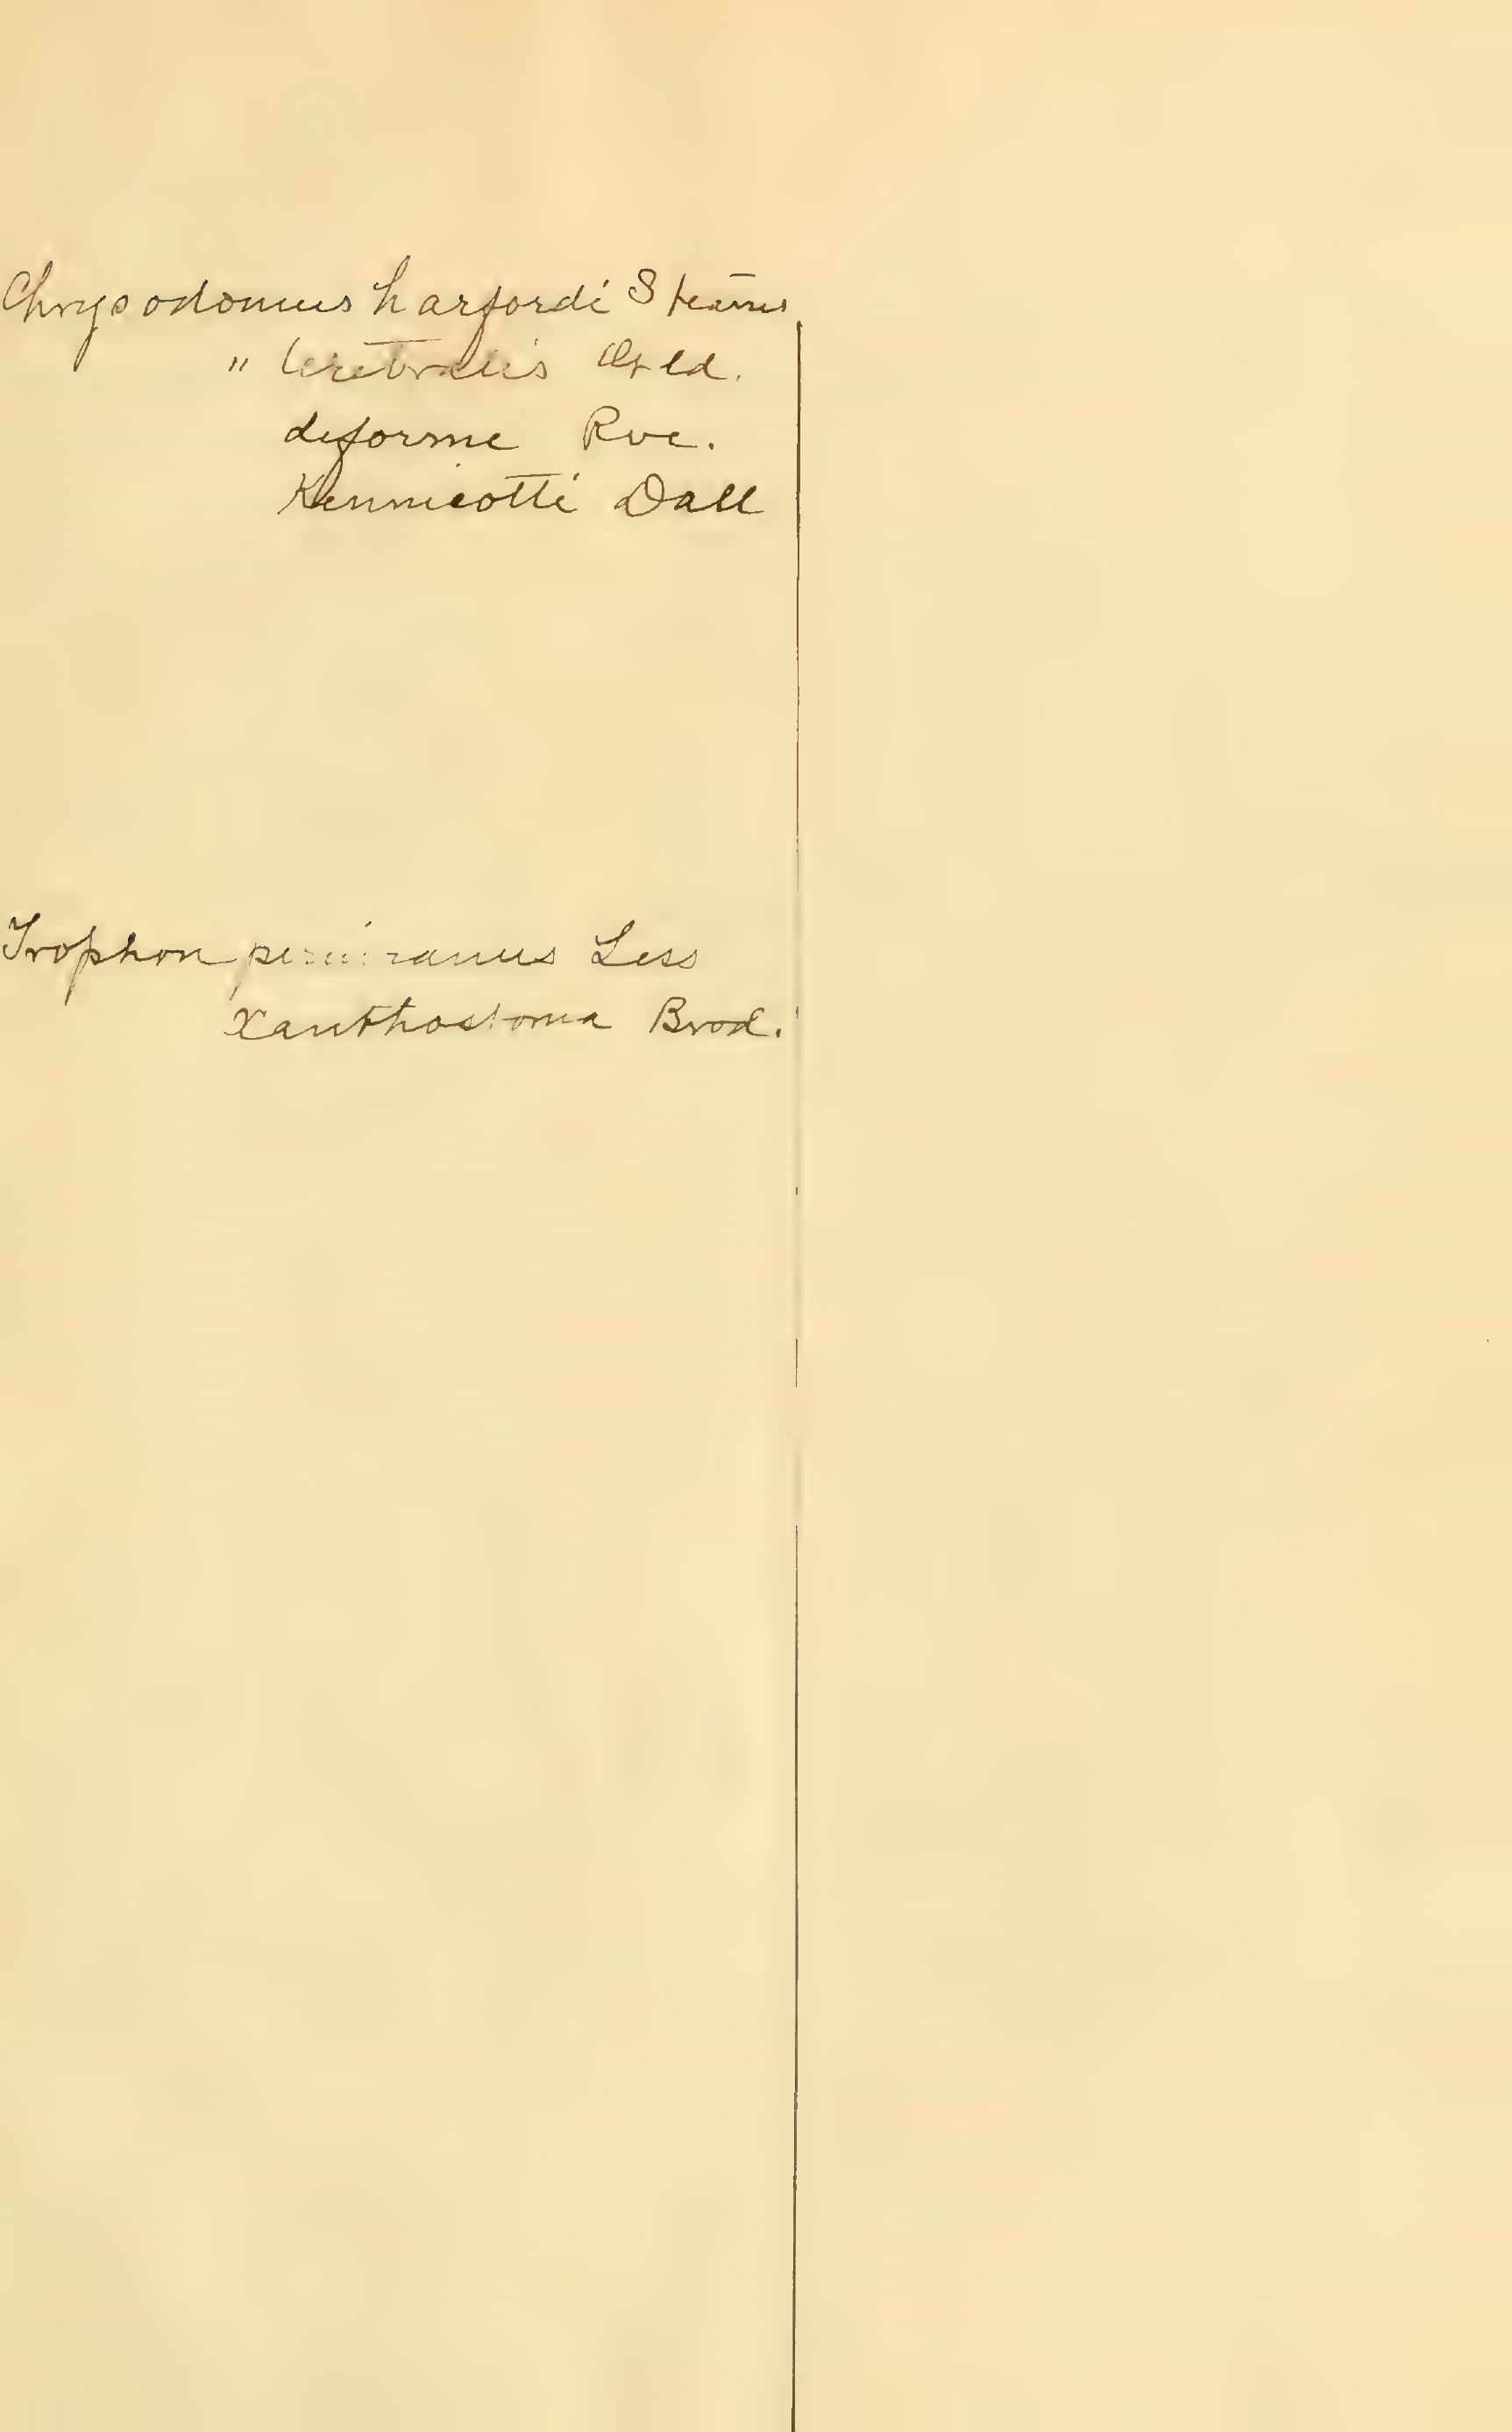 Chrysodomus harfordi Stearns
" Gld.
deforme Rve.
Kennicotti Dall
Trophon peruvianus Less
Xanthostoma Brod.